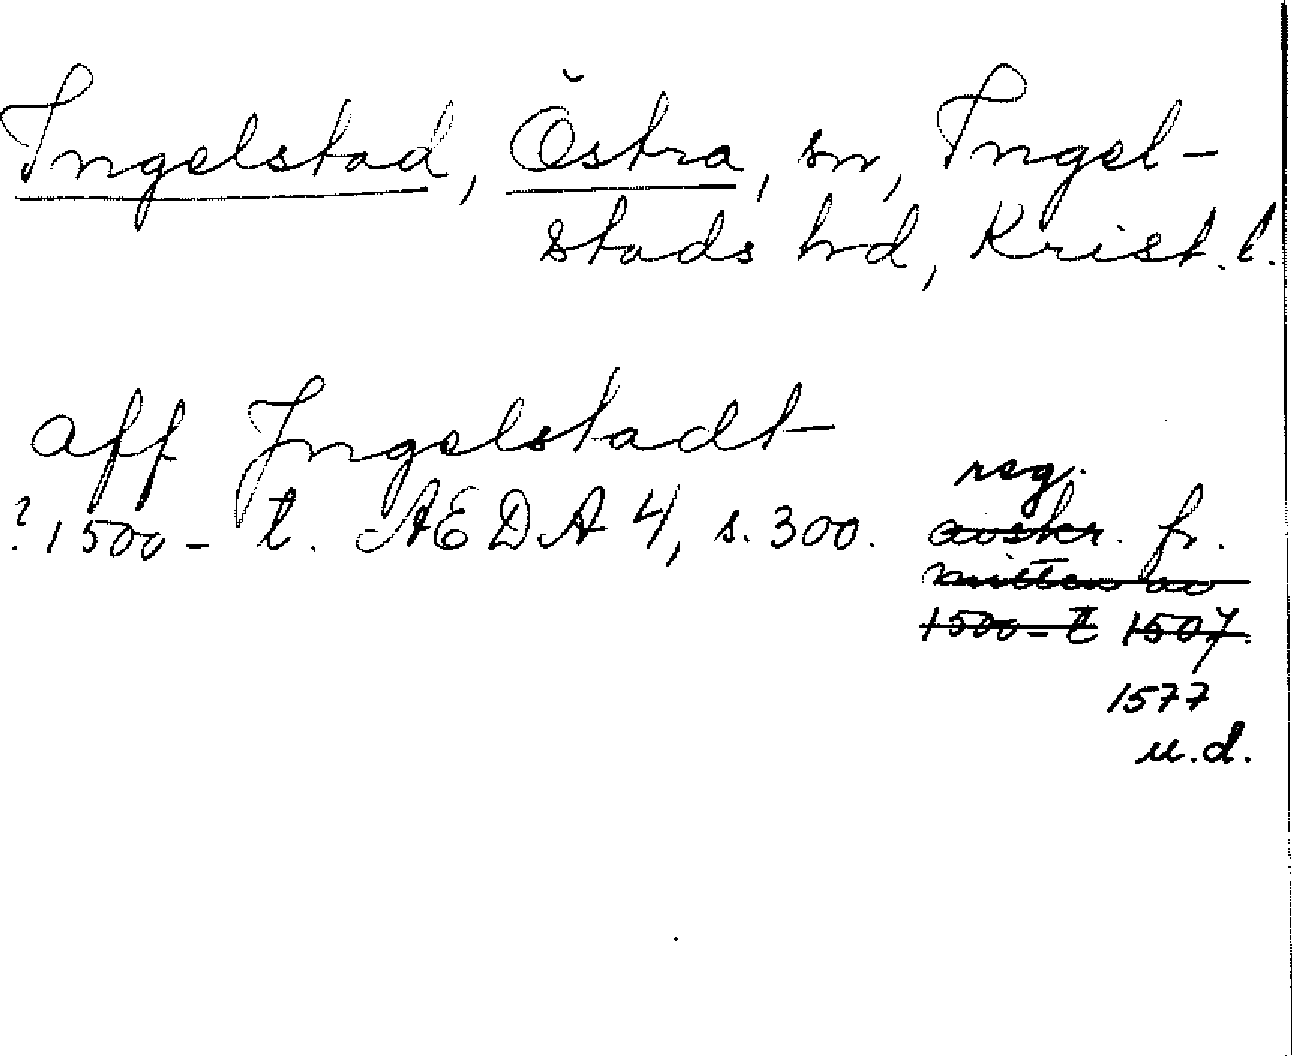 Ingelstad, Östra, sn, Ingel-
stads hrd, Krist. l.
aff Jngelstadt
reg.
? 1500-t. AEDA 4, s. 300. avskr. fr.
mitten av
1500-t 1507.
1577
u.d.